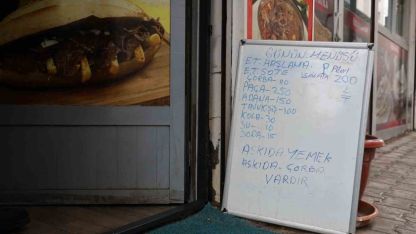 GÜNÜN MENÜSÜ
ET HAŞLAMA. P. Pilavı
ET SOTE SALATA 200
ÇORBA-80
PAÇA-250
ADANA-150
TAVUK Ş-100
KOLA-30
SU-10
SODA-15
ASKIDA YEMEK
ASKIDA-ÇORBA
VARDIR